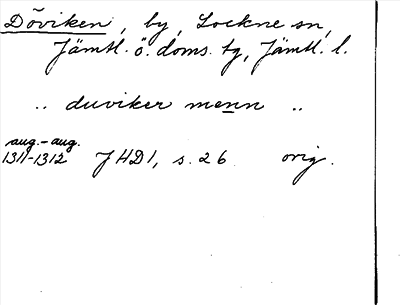 Döviken, by, Lockne sn,
Jämtl. ö. doms. tg, Jämtl. l.
.. duviker menn ..
aug.-aug.
1311-1312 JHD 1, s. 26 orig.